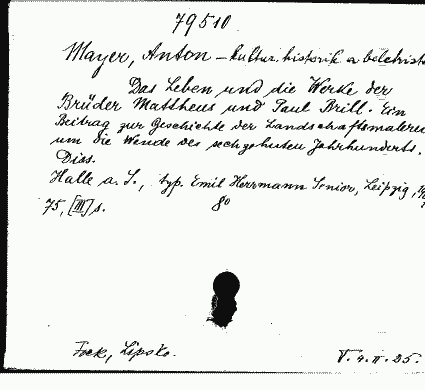 79510
Mayer, Anton – kultur. historik a beletrista
Das Leben und die Werke der
Brüder Mattheus und Paul Brill. Ein
Beitrag zur Geschichte der Landschaftsmalerei
um die Wende des sechzehnten Jahrhunderts.
Diss.
Halle a. S., typ. Emil Herrmann Senior, Leipzig,
75, [III] s. 8°
Fock, Lipsko. V. 4. II. 25.